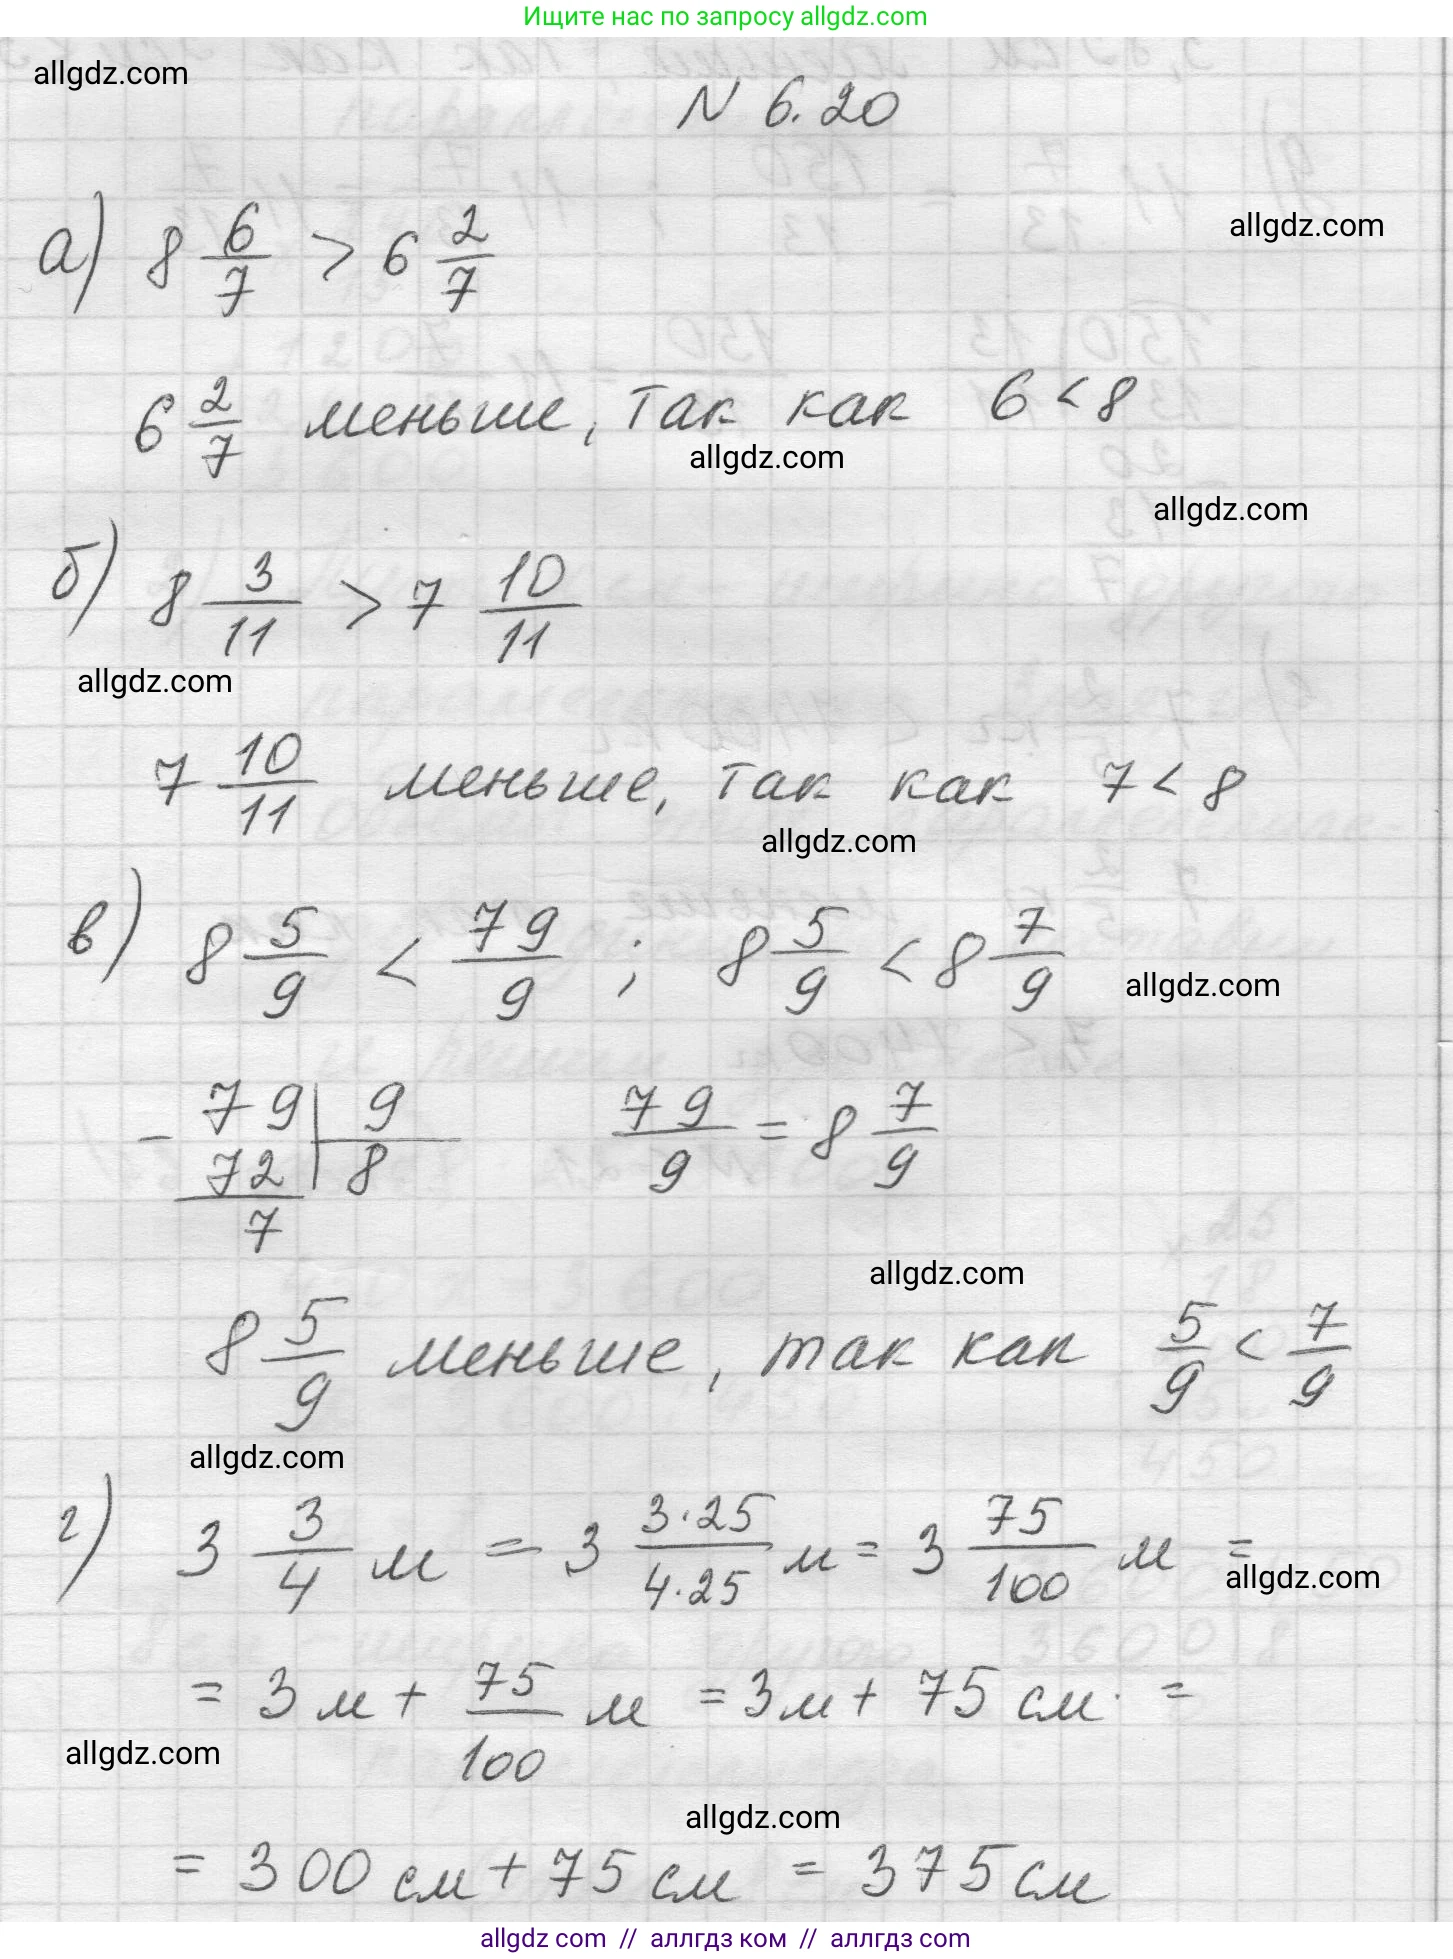 Ищите нас по запросу allgdz.com
allgdz.com
N 6.20
а) 8 6/7 > 6 2/7
allgdz.com
6 2/7 меньше, так как 6 < 8
allgdz.com
allgdz.com
б) 8 3/11 > 7 10/11
allgdz.com
7 10/11 меньше, так как 7 < 8
allgdz.com
в) 8 5/9 < 79/9 ; 8 5/9 < 8 7/9
allgdz.com
- 79 | 9
72 | 8
7
79/9 = 8 7/9
allgdz.com
8 5/9 меньше, так как 5/9 < 7/9
allgdz.com
г) 3 3/4 м = 3 3·25/4·25 м = 3 75/100 м =
allgdz.com
= 3 м + 75/100 м = 3 м + 75 см =
allgdz.com
allgdz.com
= 300 см + 75 см = 375 см
allgdz.com // аллгдз ком // аллгдз.com